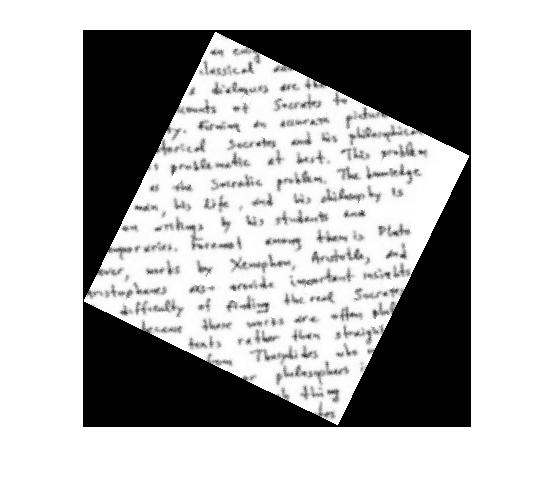 an enig
classical
dialogues are the
counts of Socrates to
ty. Forming an accurate picture
torical Socrates and his philosophical
s problematic at best. This problem
as the Socratic problem. The knowledge
man, his life, and his philosophy is
on writings by his students and
mporaries. Foremost among them is Plato
ever, works by Xenophon, Aristotle, and
Aristophanes also provide important insights
difficulty of finding the real Socrates
because these works are often phil
texts rather than straigh
from Thucydides who
or philosophers i
thing
tes